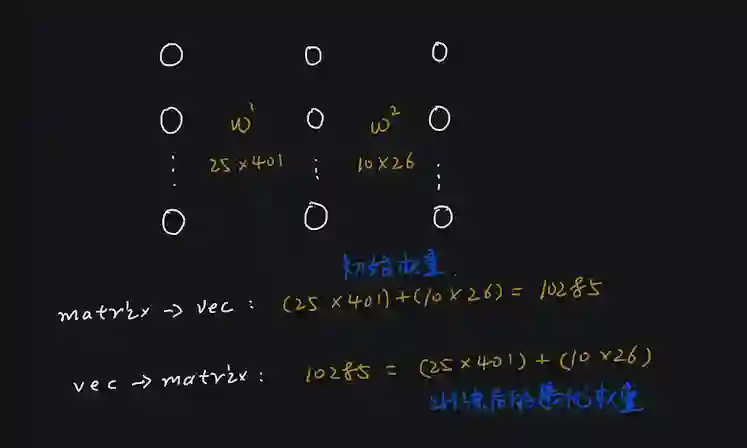 w¹ w²
25×401 10×26
初始权重
matrix → vec : (25×401)+(10×26) = 10285
vec → matrix : 10285 = (25×401) + (10×26)
训练后的最优权重